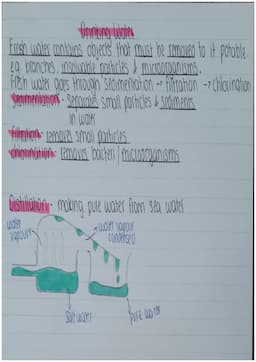 Drinking Water
Fresh water contains objects that must be removed to it potable
eg branches, insoluble particles & microorganisms.
Fresh water goes through sedimentation → filtration → chlorination
Sedimentation - separates small particles & sediments
in water
Filtration - removes small particles
chlorination - removes bacteri / microorganisms
Distillation - making pure water from sea water
water
vapour
water vapour
condenses
salt water
pure water